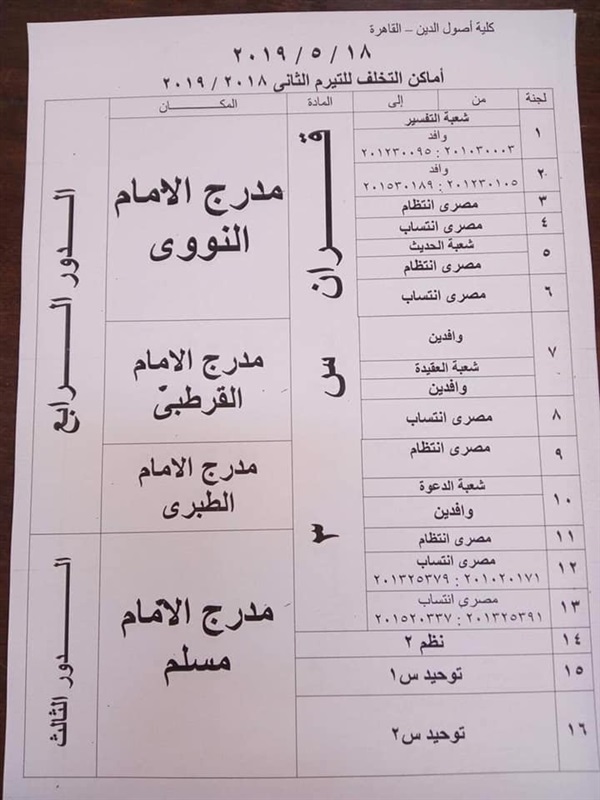 كلية أصول الدين – القاهرة
٢٠١٩ / ٥ / ١٨
أماكن التخلف للتيرم الثانى ٢٠١٨ / ٢٠١٩
لجنة من إلى المادة المكان
١ شعبة التفسير
وافد
٢٠١٠٣٠٠٠٣ : ٢٠١٢٣٠٠٩٥
٢ وافد
٢٠١٢٣٠١٠٥ : ٢٠١٥٣٠١٨٩
٣ مصرى انتظام
٤ مصرى انتساب
٥ شعبة الحديث
مصرى انتظام
٦ مصرى انتساب
٧ وافدين
شعبة العقيدة
وافدين
٨ مصرى انتساب
٩ مصرى انتظام
١٠ شعبة الدعوة
وافدين
١١ مصرى انتظام
١٢ مصرى انتساب
٢٠١٠٢٠١٧١ : ٢٠١٣٢٥٣٧٩
١٣ مصرى انتساب
٢٠١٣٢٥٣٩١ : ٢٠١٥٢٠٣٣٧
١٤ نظم ٢
١٥ توحيد س١
١٦ توحيد س٢
قران س ٣
مدرج الامام
النووى
مدرج الامام
القرطبىّ
مدرج الامام
الطبرى
مدرج الامام
مسلم
الدور الرابع
الدور الثالث